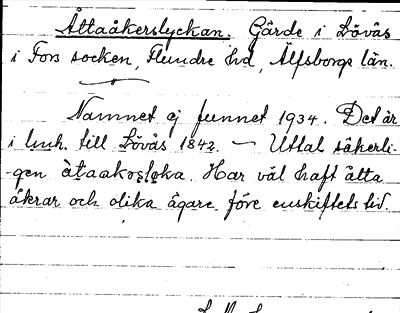 Åttaåkerslyckan. Gärde i Lövås
i Fors socken, Flundre hd, Älfsborgs län.
Namnet ej funnet 1934. Det är
i lmh. till Lövås 1842. — Uttal säkerli-
-gen åtaakosløka. Har väl haft åtta
åkrar och olika ägare före enskiftets tid.